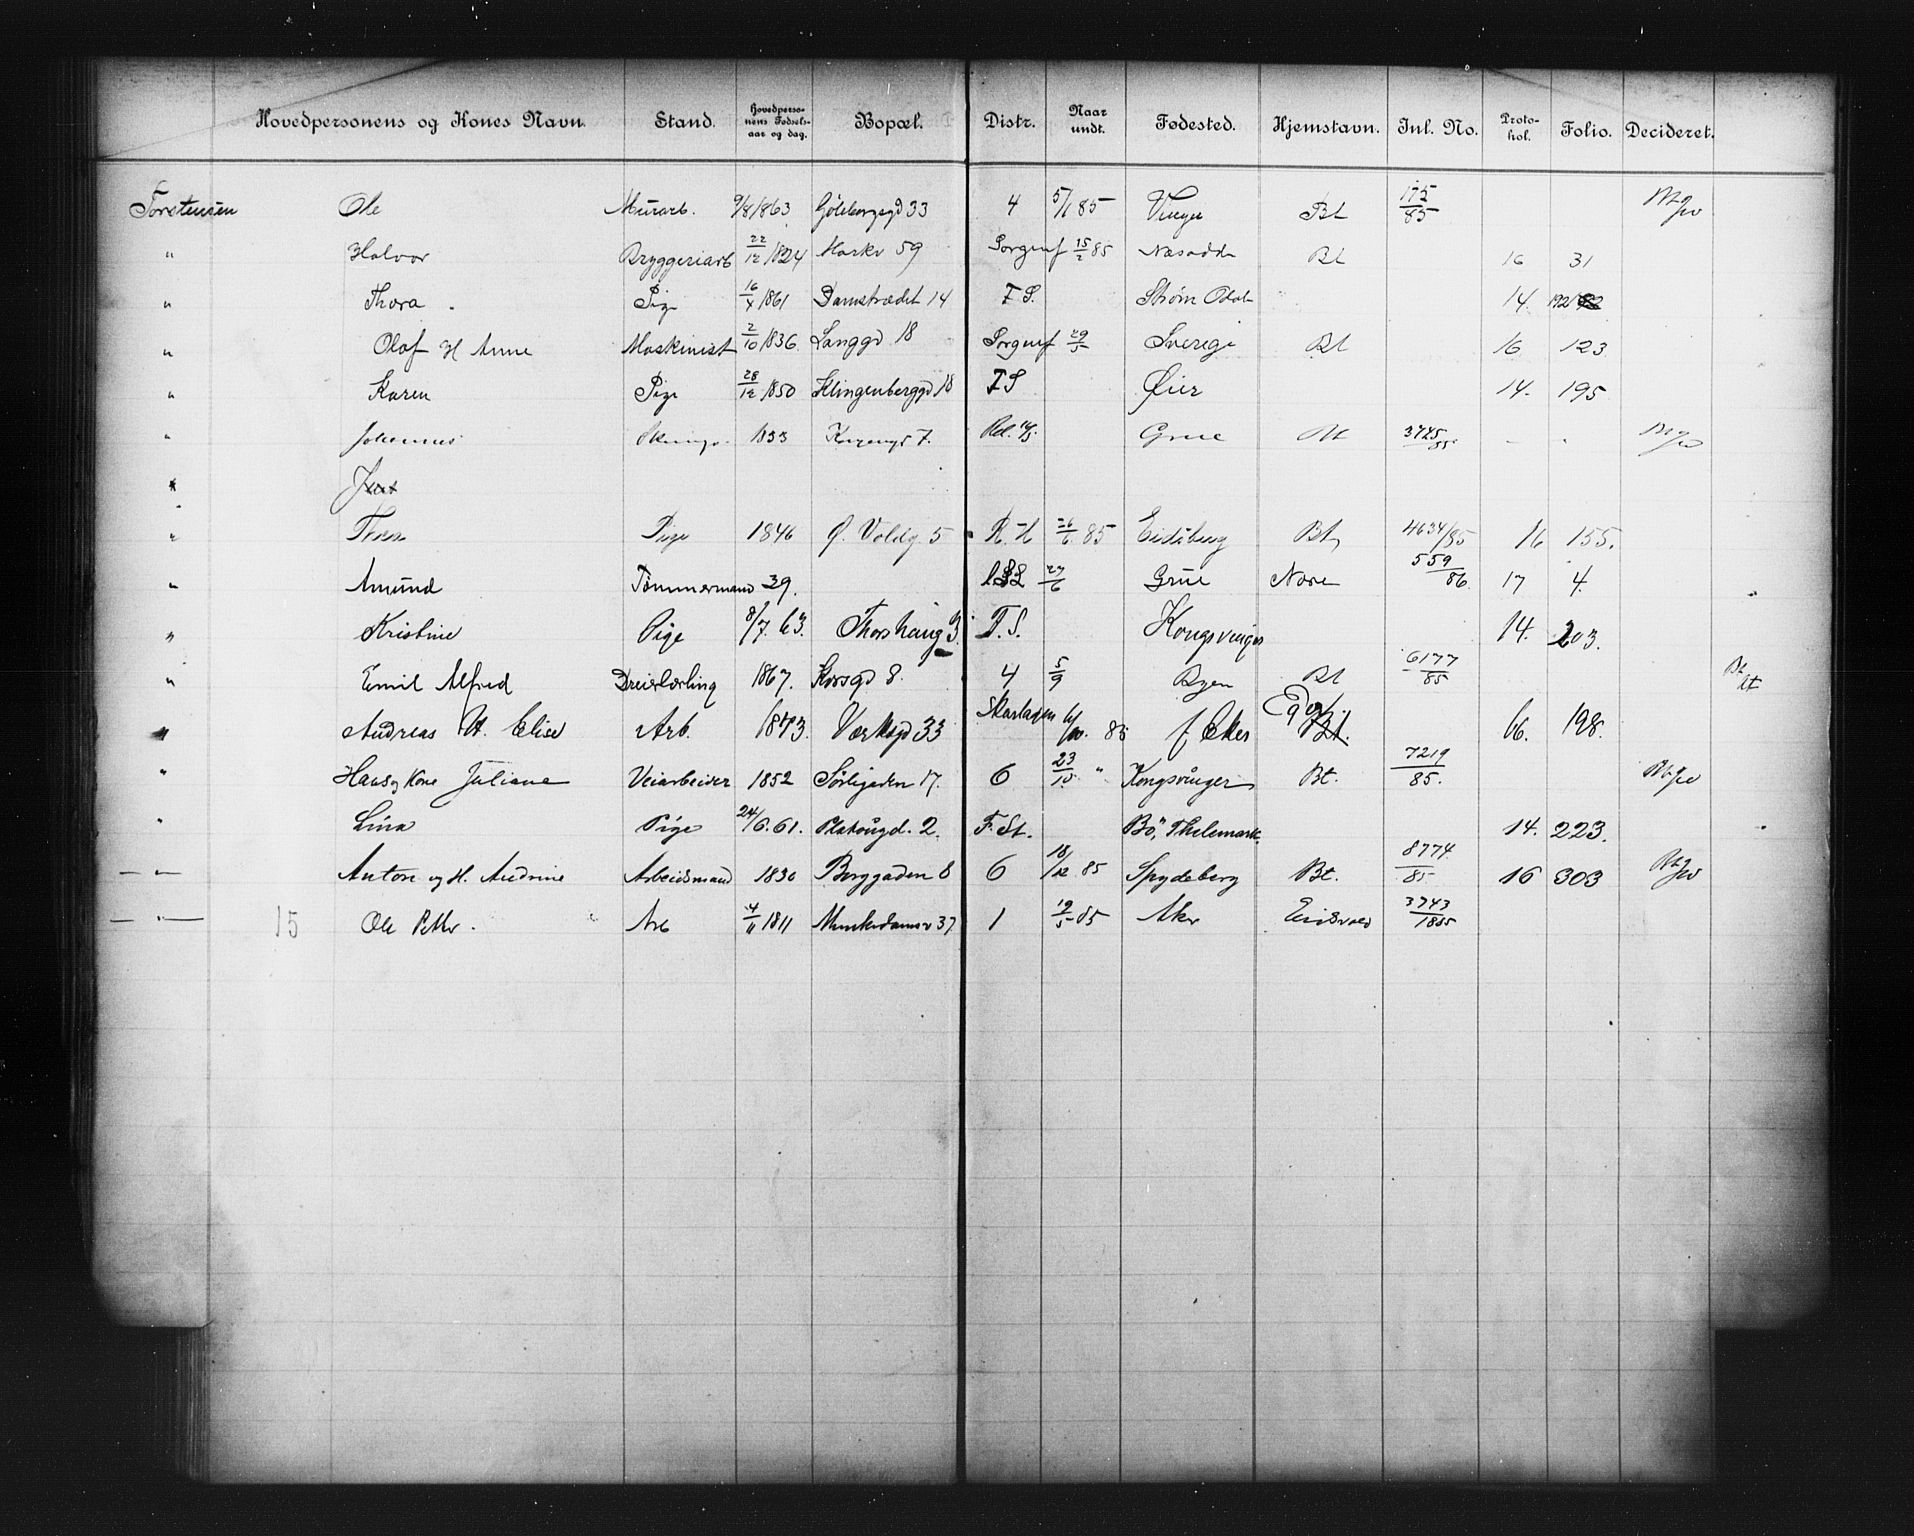 Hovedpersonens og Kones Navn. Stand. Hovedpersonens Fødselsaar og dag. Bopæl. Distr. Naar undt. Fødested. Hjemstavn. Inl. No. Protokol. Folio. Decideret.
Torstensen Ole Murarb. 9/8 1863 Göteborgsgd 33 4 5/1 85 Vinger Bt 175/85
" Halvor Bryggeriarb 22/12 1824 Markv 59 Sorgenf 15/2 85 Næsodde Bt 16 31
" Thora Pige 16/4 1861 Damstrædet 14 F S. Strøm Odal 14. 192
" Olaf H Anne Maskinist 2/10 1836 Langgd 18 Sorgenf 29/5 Sverige Bt 16 123
" Karen Pige 28/12 1850 Klingenberggd 18 F S Øier 14. 195
" Johannes 1833 7. Grue Bt 3725/85
" Thea Pige 1846 Ø. Voldg. 5 R. H 26/6 85 Eidsberg Bt 4634/85 16 155.
" Amund Tømmermand 39. 27/6 Grue Nore 559/86 17 4.
" Kristine Pige 8/7. 63. Thorshaug 3. F. S. Kongsvinger 14. 203.
" Emil Alfred Dreierlærling 1867. Korsgd 8. 4 5/9 Byen Bt 6177/85
" Andreas H. Elise Arb. 1843. Værksgd 33 85 f Eker Bt. 16. 198.
" Hans og Kone Juliane Veiarbeider 1852 Sørligaden 17. 6 23/10 " Kongsvinger Bt. 7219/85.
" Lina Pige 24/6. 61. Platougd. 2. F. St. Bö, Thelemark. 14. 223.
— " — Anton og H. Andrine Arbeidsmand 1830 Borggaden 8 6 18/12 85 Spydeberg Bt. 8774/85 16 303
— " — 15 Ole Petter Arb 4/11 1811 Munkedamsv 37 1 19/5 85 Aker Eidsvold 3743/1885